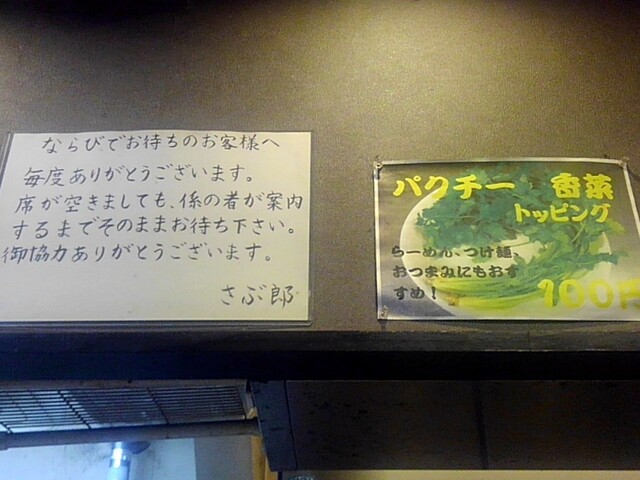 ならびでお待ちのお客様へ
毎度ありがとうございます。
席が空きましても、係の者が案内
するまでそのままお待ち下さい。
御協力ありがとうございます。
さぶ郎
パクチー 香菜
トッピング
らーめん、つけ麺、
おつまみにもおす
すめ!
100円